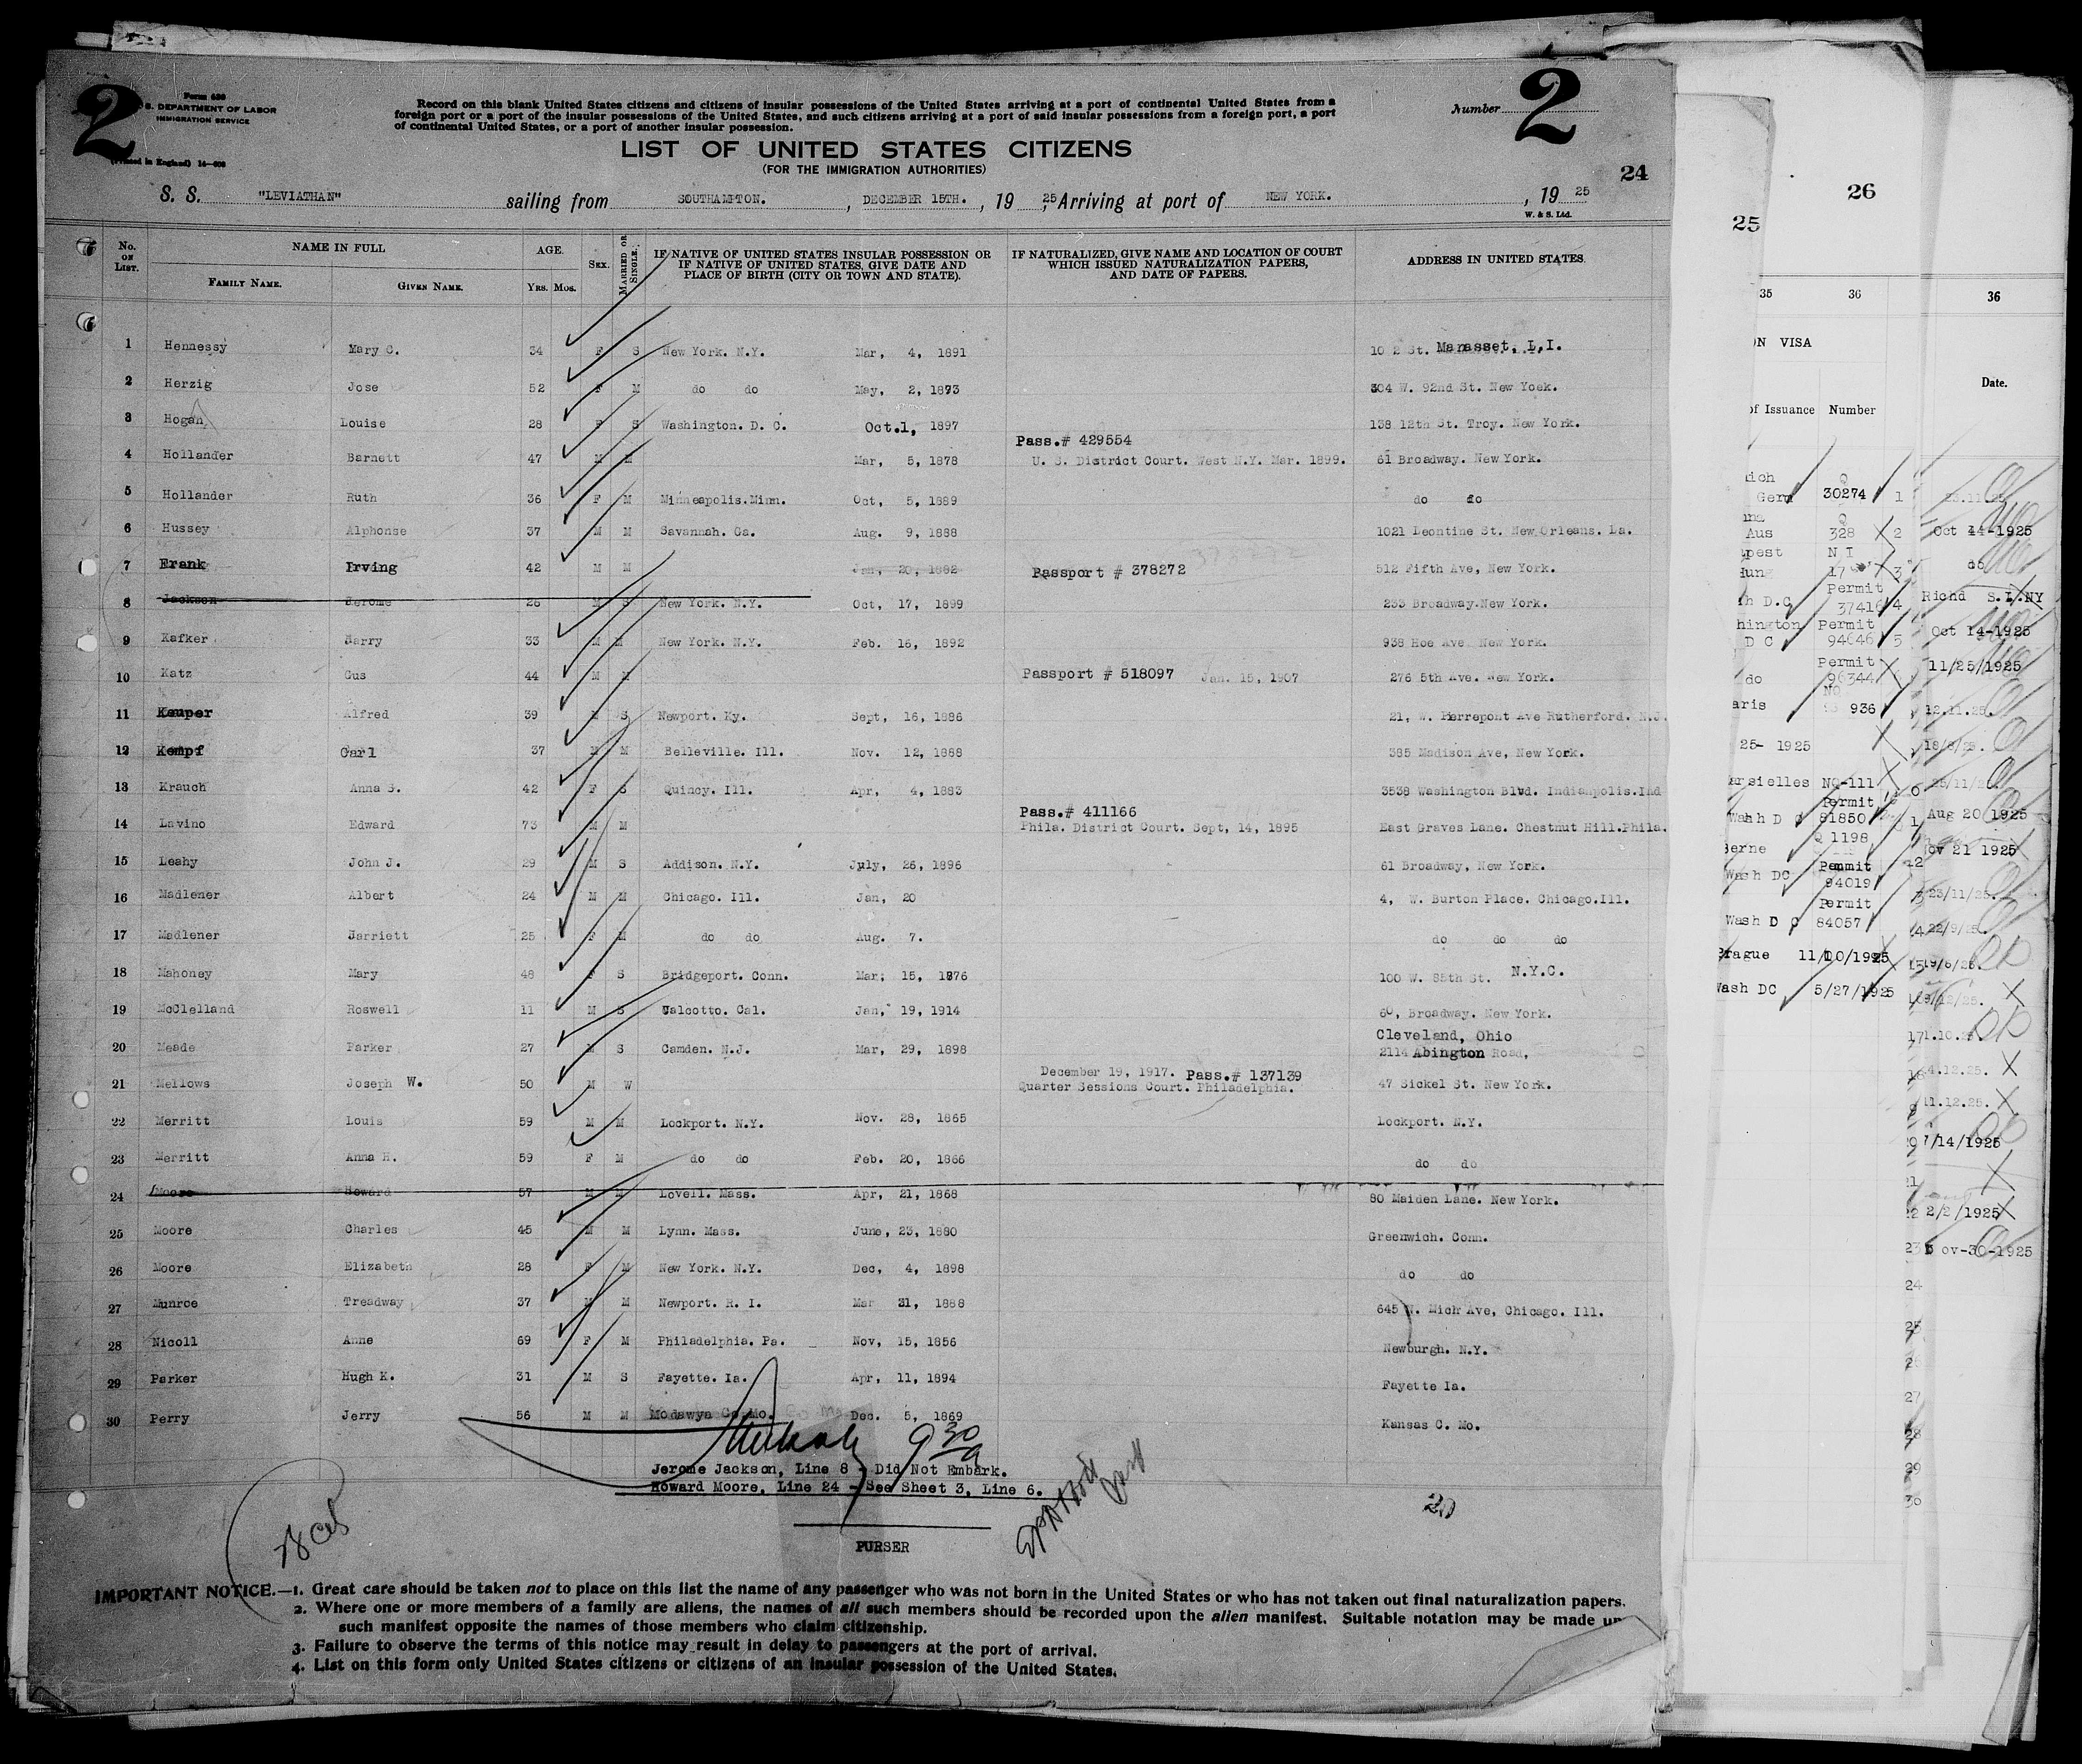 2
Form 630
S. DEPARTMENT OF LABOR
IMMIGRATION SERVICE
(Printed in England) 14—608
Record on this blank United States citizens and citizens of insular possessions of the United States arriving at a port of continental United States from a
foreign port or a port of the insular possessions of the United States, and such citizens arriving at a port of said insular possessions from a foreign port, a port
of continental United States, or a port of another insular possession.
Number 2
LIST OF UNITED STATES CITIZENS
(FOR THE IMMIGRATION AUTHORITIES)
24
S. S. "LEVIATHAN" sailing from SOUTHAMPTON. , DECEMBER 15TH. , 19 25, Arriving at port of NEW YORK. , 19 25
W. & S. Ltd.
No. on List.
NAME IN FULL
Family Name.
Given Name.
AGE.
Yrs. Mos.
Sex.
Married or Single.
IF NATIVE OF UNITED STATES INSULAR POSSESSION OR
IF NATIVE OF UNITED STATES, GIVE DATE AND
PLACE OF BIRTH (CITY OR TOWN AND STATE).
IF NATURALIZED, GIVE NAME AND LOCATION OF COURT
WHICH ISSUED NATURALIZATION PAPERS,
AND DATE OF PAPERS.
ADDRESS IN UNITED STATES.
1 Hennessy Mary C. 34 F S New York. N.Y. Mar, 4, 1891 St. Manasset, L.I.
2 Herzig Jose 52 F M do do May, 2, 1873 304 W. 92nd St. New Yoek.
3 Hogan Louise 28 F S Washington. D. C. Oct.1, 1897 138 12th St. Troy. New York.
Pass.# 429554
4 Hollander Barnett 47 M M Mar, 5, 1878 U. S. District Court. West N.Y. Mar. 1899. 61 Broadway. New York.
5 Hollander Ruth 36 F M Minneapolis.Minn. Oct, 5, 1889 do do
6 Hussey Alphonse 37 M M Savannah. Ga. Aug. 9, 1888 1021 Leontine St. New Orleans. La.
7 Frank Irving 42 M M Jan, 20, 1882 Passport # 378272 512 Fifth Ave, New York.
8 Jackson Jerome 26 M S New York. N.Y. Oct, 17, 1899 233 Broadway.New York.
9 Kafker Harry 33 M M New York. N.Y. Feb. 16, 1892 938 Hoe Ave New York.
10 Katz Gus 44 M M Passport # 518097 Jan. 15, 1907 276 5th Ave. New York.
11 Kauper Alfred 39 M S Newport. Ky. Sept, 16, 1886 21, W. Pierrepont Ave Rutherford. N.J.
12 Kempf Carl 37 M M Belleville. Ill. Nov. 12, 1888 385 Madison Ave, New York.
13 Krauch Anna S. 42 F S Quincy. Ill. Apr, 4, 1883 3538 Washington Blvd. Indianpolis.Ind
Pass.# 411166
14 Lavino Edward 73 M M Phila. District Court. Sept, 14, 1895 East Graves Lane. Chestnut Hill.Phila.
15 Leahy John J. 29 M S Addison. N.Y. July, 26, 1896 61 Broadway, New York.
16 Madlener Albert 24 M M Chicago. Ill. Jan, 20 4, W. Burton Place. Chicago.Ill.
17 Madlener Harriett 25 F M do do Aug. 7. do do do
18 Mahoney Mary 48 F S Bridgeport. Conn. Mar; 15, 1876 100 W. 85th St. N.Y.C.
19 McClelland Roswell 11 M S Calcotto. Cal. Jan, 19, 1914 60, Broadway. New York.
Cleveland, Ohio
20 Meade Parker 27 M S Camden. N.J. Mar, 29, 1898 2114 Abington Road,
December 19, 1917. Pass.# 137139
21 Mellows Joseph W. 50 M W Quarter Sessions Court. Philadelphia. 47 Sickel St. New York.
22 Merritt Louis 59 M M Lockport. N.Y. Nov. 28, 1865 Lockport. N.Y.
23 Merritt Anna H. 59 F M do do Feb. 20, 1866 do do
24 Moore Howard 57 M M Lovell. Mass. Apr, 21, 1868 80 Maiden Lane. New York.
25 Moore Charles 45 M M Lynn. Mass. June, 23, 1880 Greenwich. Conn.
26 Moore Elizabeth 28 F M New York. N.Y. Dec, 4, 1898 do do
27 Munroe Treadway 37 M M Newport. R. I. Mar 31, 1888 645 N. Mich Ave, Chicago. Ill.
28 Nicoll Anne 69 F M Philadelphia. Pa. Nov, 15, 1856 Newburgh. N.Y.
29 Parker Hugh K. 31 M S Fayette. Ia. Apr, 11, 1894 Fayette Ia.
30 Perry Jerry 56 M M Modawya Co Mo. Dec. 5, 1869 Kansas C. Mo.
9 30 a
Jerome Jackson, Line 8 - Did Not Embark.
Howard Moore, Line 24 - See Sheet 3, Line 6.
20
PURSER
IMPORTANT NOTICE.—1. Great care should be taken not to place on this list the name of any passenger who was not born in the United States or who has not taken out final naturalization papers.
2. Where one or more members of a family are aliens, the names of all such members should be recorded upon the alien manifest. Suitable notation may be made up
such manifest opposite the names of those members who claim citizenship.
3. Failure to observe the terms of this notice may result in delay to passengers at the port of arrival.
4. List on this form only United States citizens or citizens of an insular possession of the United States.
25
35 36
ON VISA
of Issuance Number
Germ 30274
Aus 328
pest N I
Hung 17
Permit
h D.C 37416
hington Permit
D C 94646
Permit
do 96344
aris 936
25- 1925
arsielles NQ-111
Permit
Wash D C 81850
Berne Q 1198
Wash DC Permit
94019
Permit
Wash D C 84057
Prague 11/10/1925
Wash DC 5/27/1925
26
36
Date.
1 23.11.25
2 Oct 14-1925
3 do
4 Richd S.I.NY
5 Oct 14-1925
11/25/1925
12.11.25.
18/8/25.
25/11/25
Aug 20 1925
12 Nov 21 1925
23/11/25.
22/9/25.
19/6/25.
17 1.10.25
18 4.12.25.
11.12.25.
7/14/1925
21
22 2/2/1925
23 Nov-30-1925
24
25
26
27
28
29
30